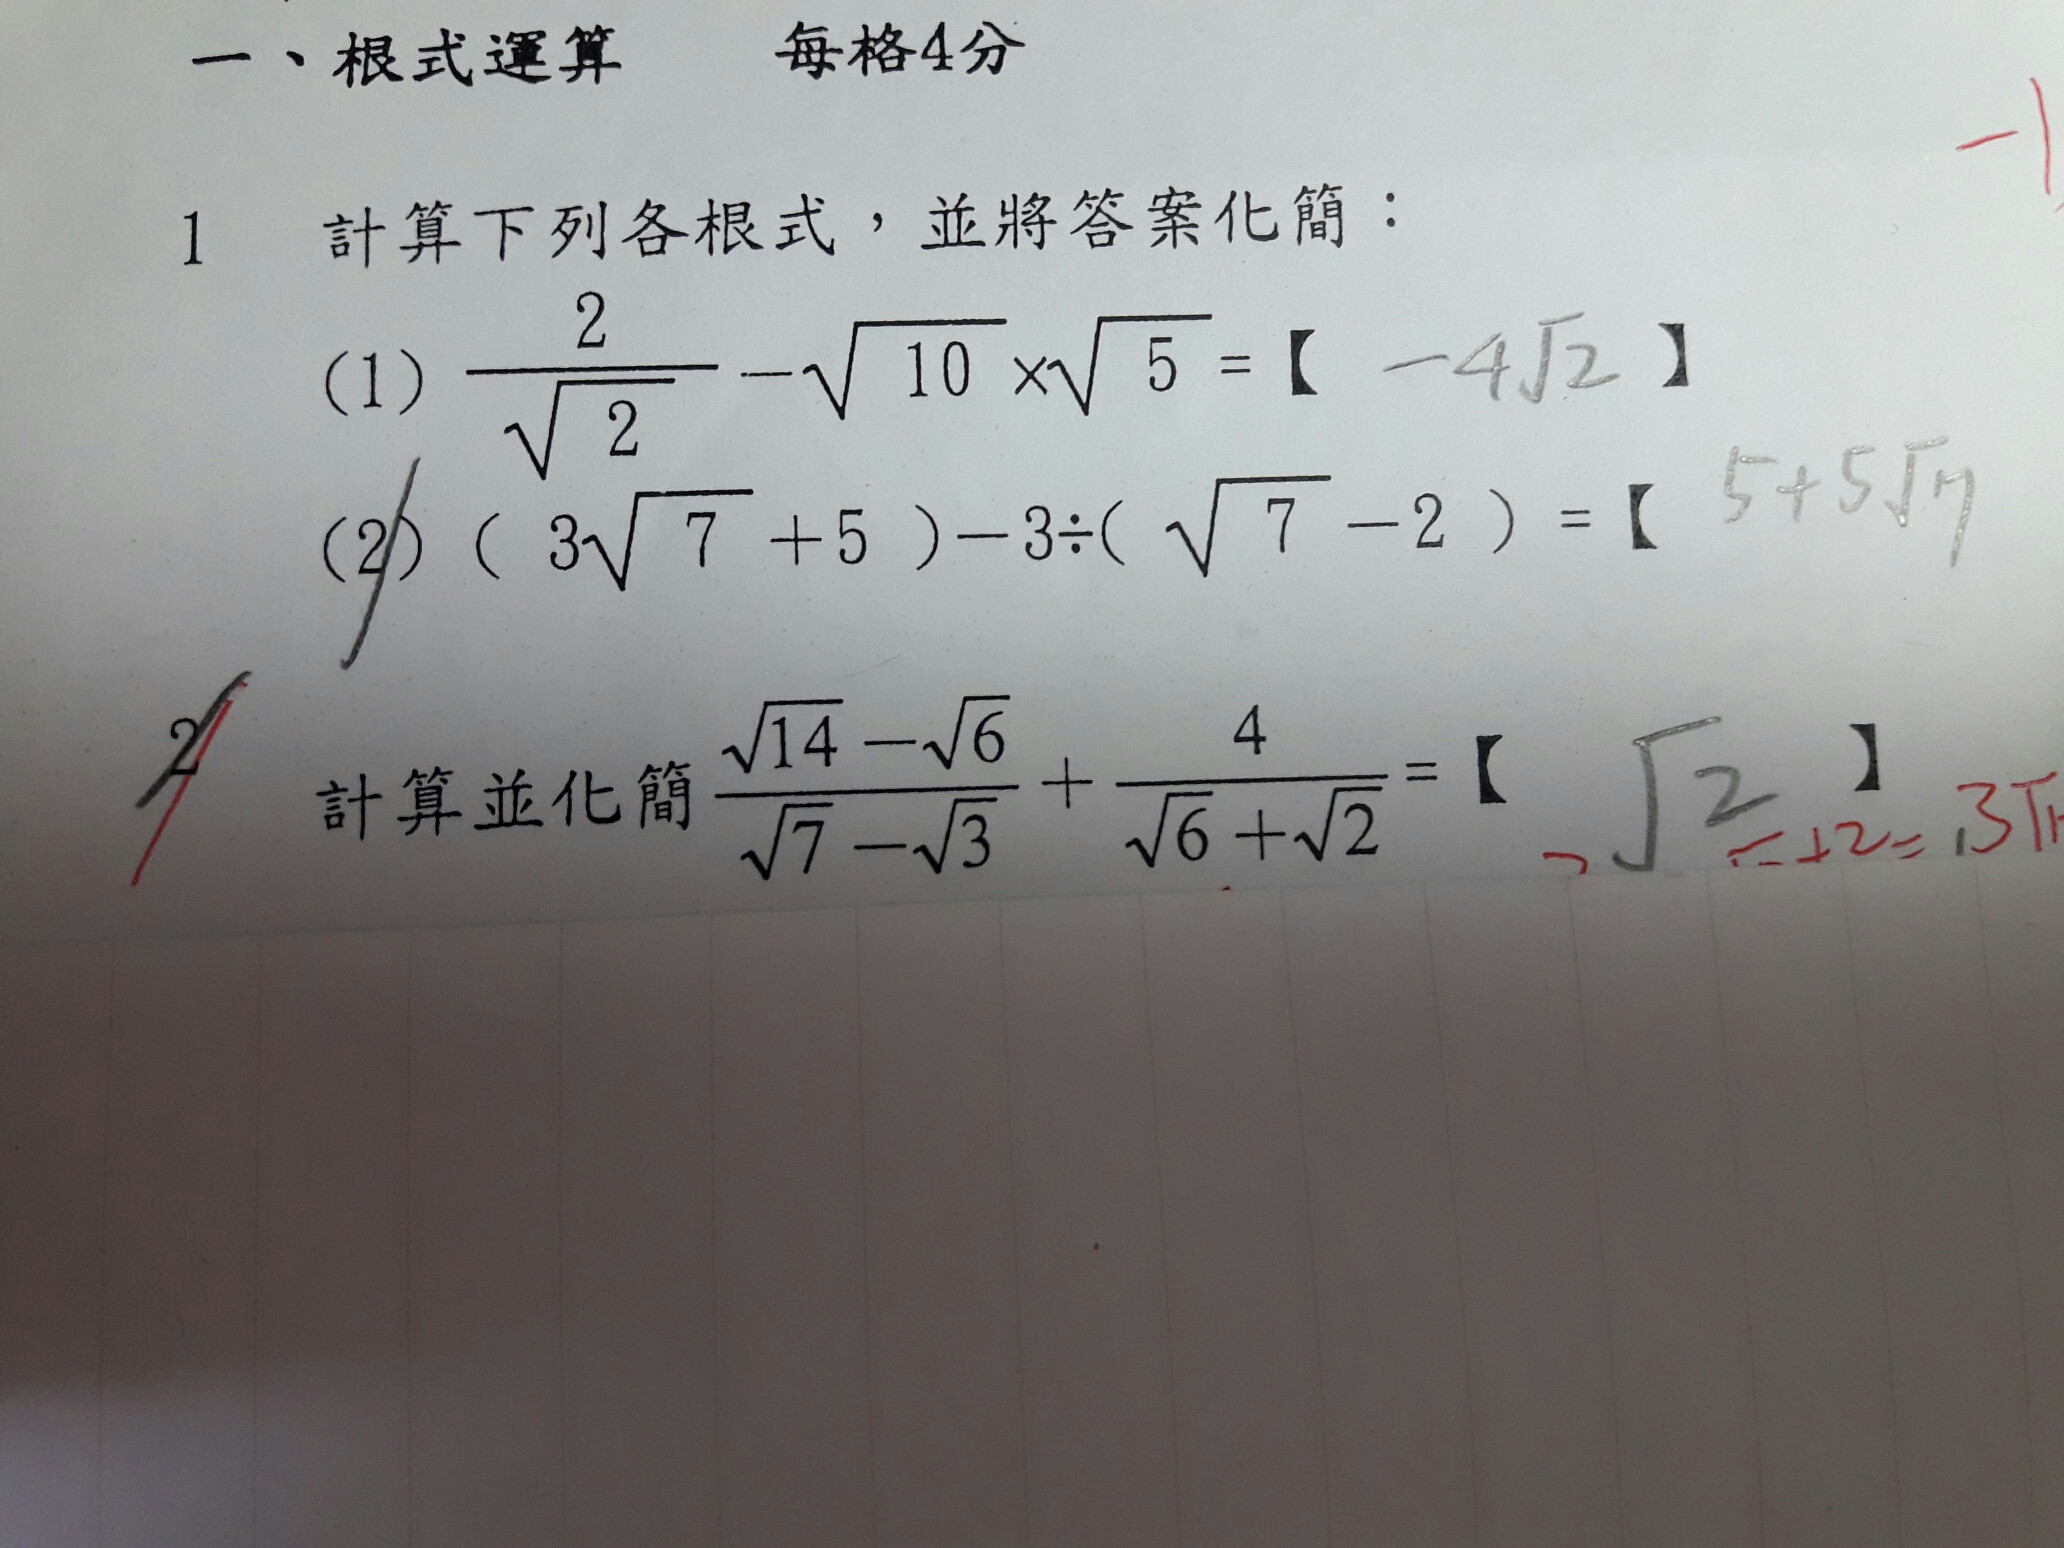 一、根式運算 每格4分
-1
1 計算下列各根式，並將答案化簡：
(1) 2/√2 -√10×√5=【 -4√2 】
(2) ( 3√7+5 )-3÷( √7-2 ) =【 5+5√7
2 計算並化簡 (√14-√6)/(√7-√3) + 4/(√6+√2) =【 √2 】
+2= 3√